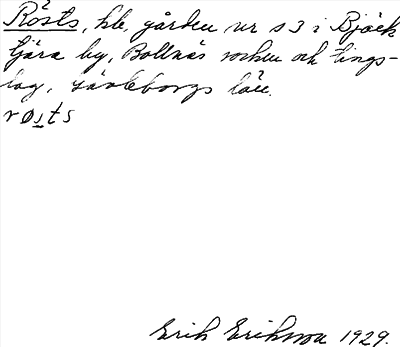 Rösts, hb, gården nr s 3 i Björk
tjära by, Bollnäs socken och tings-
lag, Gävleborgs län.
røsts
Erik Eriksson 1929.